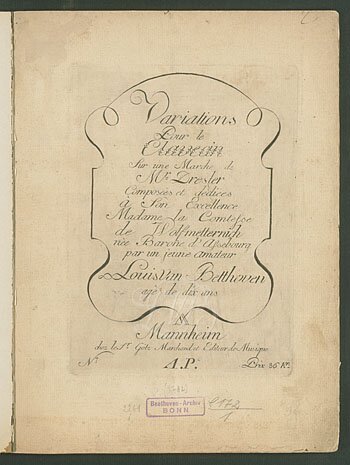 Variations
Pour le
Clavecin
Sur une Marche de
Mr. Dresler
Composées et dediées
à Son Excellence
Madame la Comtesse
de Wolfmetternich
née Baronne d'Assebourg
par un jeune amateur
Louis van Betthoven
agé de dix ans
A
Mannheim
chez le Sr. Götz Marchand et Editeur de Musique
No.
A.P.
Prix 36 Kr.
Beethoven-Archiv
BONN
C 172
1.